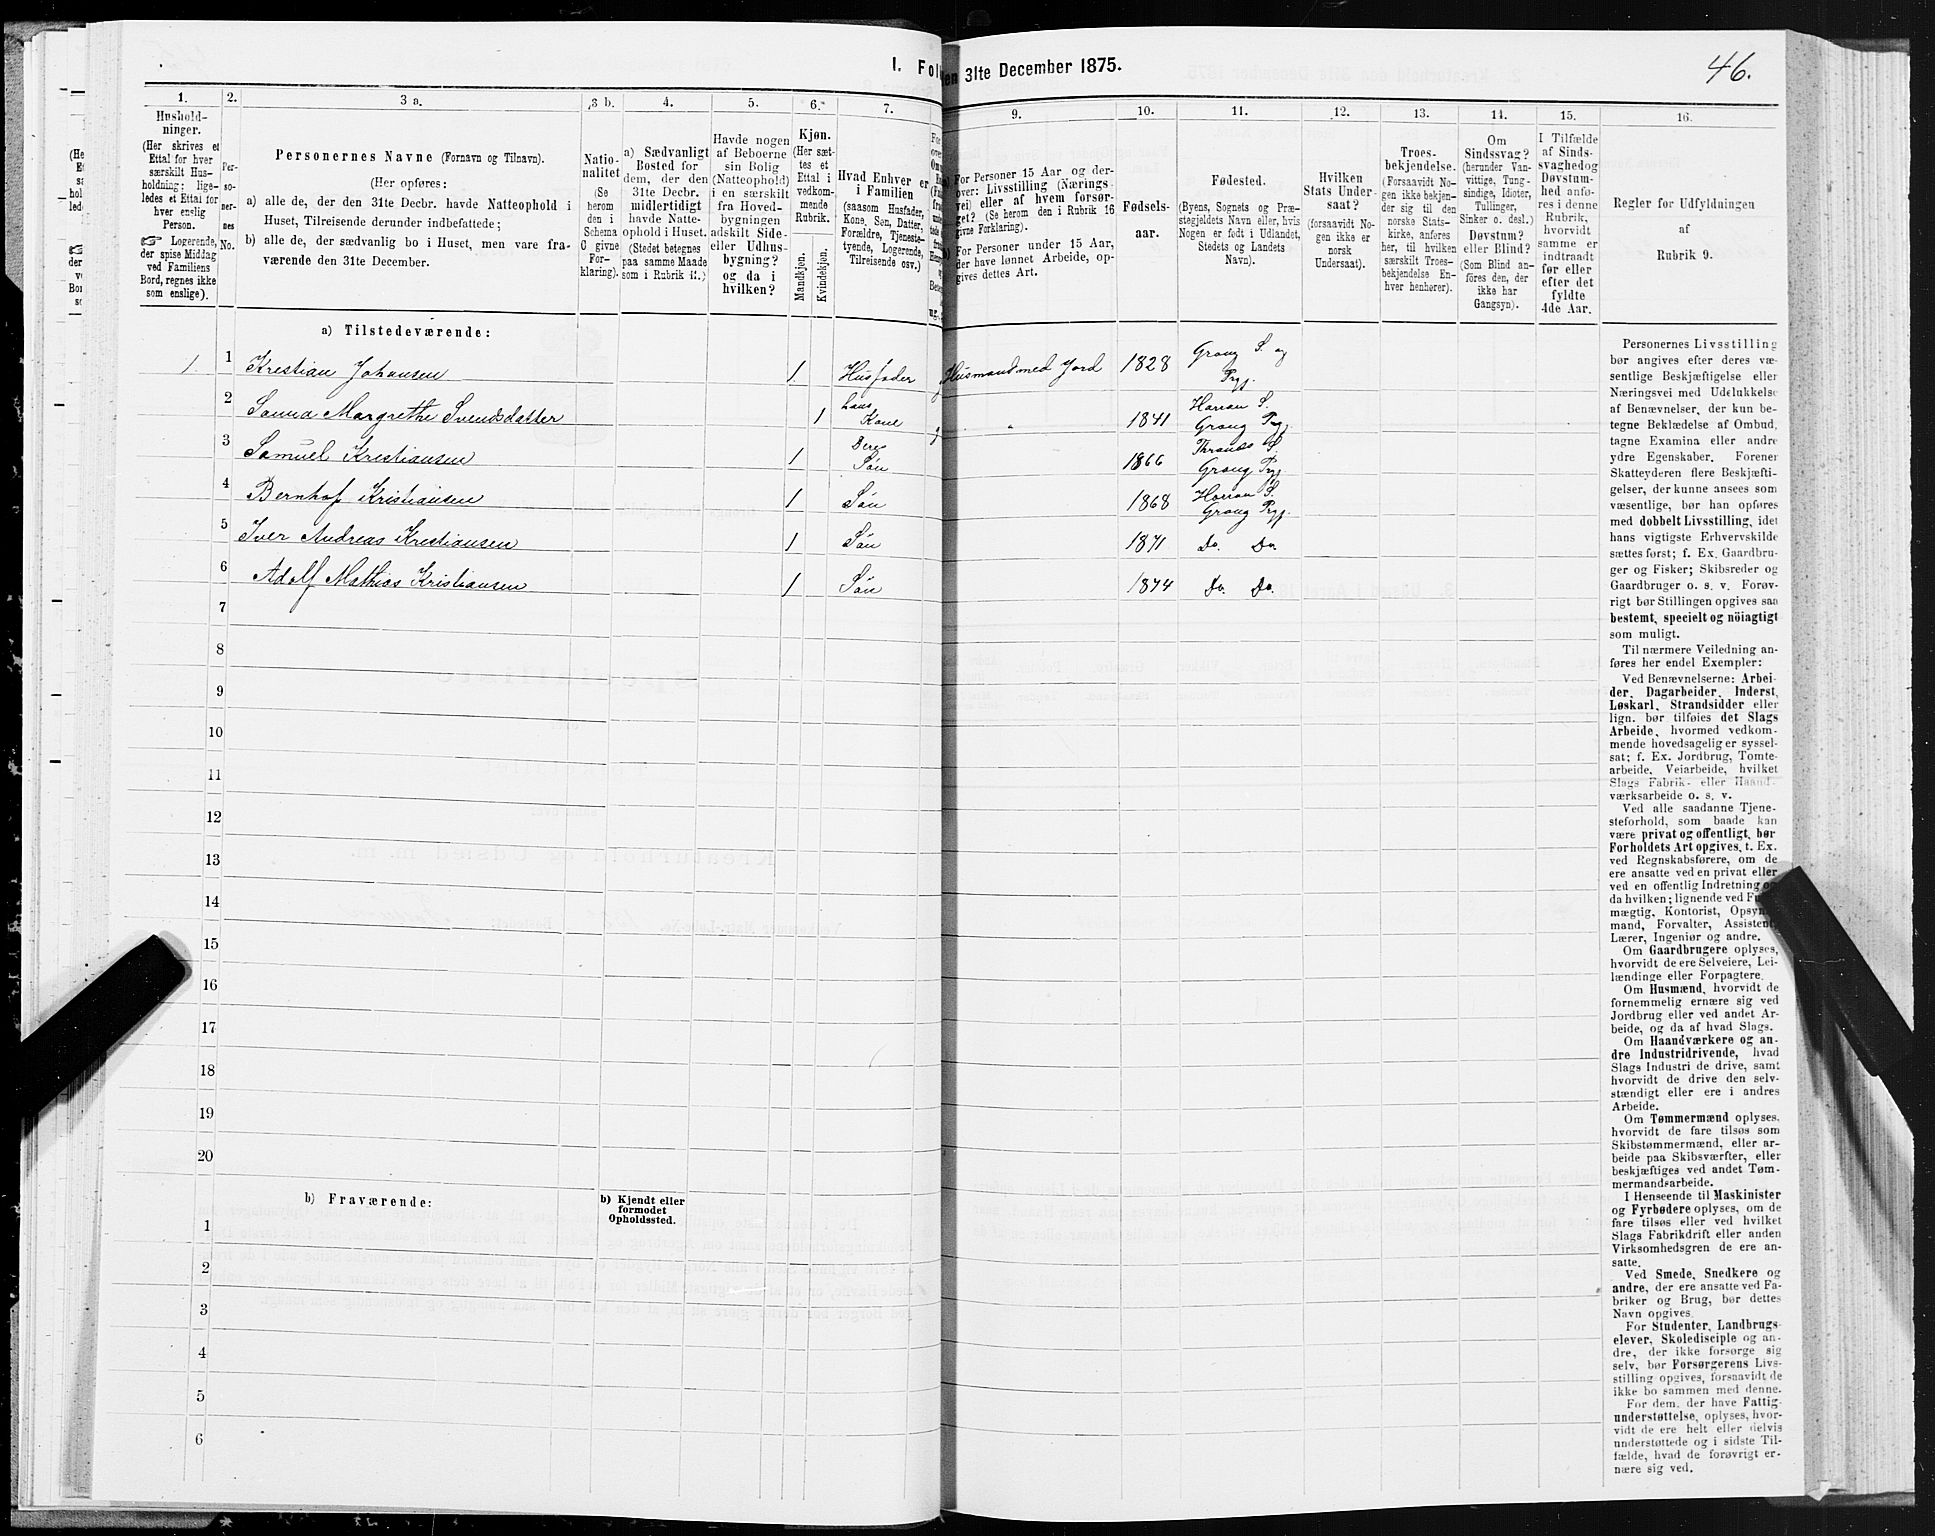 46.
I. Fol
en 31te December 1875.
1. 2. 3 a. 3 b. 4. 5. 6. 7.
9. 10. 11. 12. 13. 14. 15. 16.
Hushold-
ninger.
(Her skrives et
Ettal for hver
særskilt Hus-
holdning; lige-
ledes et Ettal for
hver enslig
Person.
☞ Logerende,
der spise Middag
ved Familiens
Bord, regnes ikke
som enslige).
Per-
so-
ner-
nes
No.
Personernes Navne (Fornavn og Tilnavn).
(Her opføres:
a) alle de, der den 31te Decbr. havde Natteophold i
Huset, Tilreisende derunder indbefattede;
b) alle de, der sædvanlig bo i Huset, men vare fra-
værende den 31te December.
Natio-
nalitet
(Se
herom
den i
Schema
C givne
For-
klaring).
a) Sædvanligt
Bosted for
dem, der den
31te Decbr.
midlertidigt
havde Natte-
ophold i Huset.
(Stedet betegnes
paa samme Maade
som i Rubrik 11.)
Havde nogen
af Beboerne
sin Bolig
(Natteophold)
i en særskilt
fra Hoved-
bygningen
adskilt Side-
eller Udhus-
bygning?
og da i
hvilken?
Kjøn.
(Her sæt-
tes et
Ettal i
vedkom-
mende
Rubrik.
Mandkjøn.
Kvindekjøn.
Hvad Enhver er
i Familien
(saasom Husfader,
Kone, Søn, Datter,
Forældre, Tjeneste-
tyende, Logerende,
Tilreisende osv.)
For Personer 15 Aar og der-
over: Livsstilling (Nærings-
vei) eller af hvem forsør-
get? (Se herom den i Rubrik 16
givne Forklaring).
For Personer under 15 Aar,
der have lønnet Arbeide, op-
gives dettes Art.
Fødsels-
aar.
Fødested.
(Byens, Sognets og Præ-
stegjeldets Navn eller, hvis
Nogen er født i Udlandet,
Stedets og Landets
Navn).
Hvilken
Stats Under-
saat?
(forsaavidt No-
gen ikke er
norsk
Undersaat).
Troes-
bekjendelse.
(Forsaavidt No-
gen ikke bekjen-
der sig til den
norske Stats-
kirke, anføres
her, til hvilken
særskilt Troes-
bekjendelse En-
hver henhører).
Om
Sindssvag?
(herunder Van-
vittige, Tung-
sindige, Idioter,
Tullinger,
Sinker o. desl.)
Døvstum?
eller Blind?
(Som Blind an-
föres den, der
ikke har
Gangsyn).
I Tilfælde
af Sinds-
svaghed og
Døvstum-
hed anfø-
res i denne
Rubrik,
hvorvidt
samme er
indtraadt
før eller
efter det
fyldte
4de Aar.
Regler for Udfyldningen
af
Rubrik 9.
a) Tilstedeværende:
1 1 Krestian Johansen 1 Husfader Husmand med Jord 1828 Grong S. og
Prgj.
2 Margrethe Svendsdatter 1 hans Kone " 1841 Harran S.
Grong Prgj.
3 Samuel Krestiansen 1 Deres Søn 1866 S.
Grong Prgj.
4 Bernhof Kristiansen 1 Søn 1868 Harran S.
Grong Prgj.
5 Iver Andreas Krestiansen 1 Søn 1871 Do. Do.
6 Adolf Mathias Kristiansen 1 Søn 1874 Do. Do.
7
8
9
10
11
12
13
14
15
16
17
18
19
20
b) Fraværende:
b) Kjendt eller
formodet
Opholdssted.
1
2
3
4
5
6
Personernes Livsstilling
bør angives efter deres væ-
sentlige Beskjæftigelse eller
Næringsvei med Udelukkelse
af Benævnelser, der kun be-
tegne Beklædelse af Ombud,
tagne Examina eller andre
ydre Egenskaber. Forener
Skatteyderen flere Beskjæfti-
gelser, der kunne ansees som
væsentlige, bør han opføres
med dobbelt Livsstilling, idet
hans vigtigste Erhvervskilde
sættes først; f. Ex. Gaardbru-
ger og Fisker; Skibsreder og
Gaardbruger o. s. v. Forøv-
rigt bør Stillingen opgives saa
bestemt, specielt og nöiagtigt
som muligt.
Til nærmere Veiledning an-
føres her endel Exempler:
Ved Benævnelserne: Arbei-
der, Dagarbeider, Inderst,
Løskarl, Strandsidder eller
lign. bør tilføies det Slags
Arbeide, hvormed vedkom-
mende hovedsagelig er syssel-
sat; f. Ex. Jordbrug, Tomte-
arbeide, Veiarbeide, hvilket
Slags Fabrik- eller Haand-
værksarbeide o. s. v.
Ved alle saadanne Tjene-
steforhold, som baade kan
være privat og offentligt, bør
Forholdets Art opgives, t. Ex.
ved Regnskabsførere, om de
ere ansatte ved en privat eller
ved en offentlig Indretning og
da hvilken; lignende ved Fu
mægtig, Kontorist, Opsyn
mand, Forvalter, Assistent,
Lærer, Ingeniør og andre.
Om Gaardbrugere oplyses,
hvorvidt de ere Selveiere, Lei-
lændinge eller Forpagtere.
Om Husmænd, hvorvidt de
fornemmelig ernære sig ved
Jordbrug eller ved andet Ar-
beide, og da af hvad Slags.
Om Haandværkere og an-
dre Industridrivende, hvad
Slags Industri de drive, samt
hvorvidt de drive den selv-
stændigt eller ere i andres
Arbeide.
Om Tømmermænd oplyses,
hvorvidt de fare tilsøs som
Skibstømmermænd, eller ar-
beide paa Skibsværfter, eller
beskjæftiges ved andet Tøm-
mermandsarbeide.
I Henseende til Maskinister
og Fyrbødere oplyses, om de
fare tilsøs eller ved hvilket
Slags Fabrikdrift eller anden
Virksomhedsgren de ere an-
satte.
Ved Smede, Snedkere og
andre, der ere ansatte ved Fa-
briker og Brug, bør dettes
Navn opgives.
For Studenter, Landbrugs-
elever, Skoledisciple og an-
dre, der ikke forsørge sig
selv, bør Forsørgerens Livs-
stilling opgives, forsaavidt de
ikke bo sammen med denne.
For dem, der have Fattig-
understøttelse, oplyses, hvor-
vidt de ere helt eller delvis
understøttede og i sidste Til-
fælde, hvad de forøvrigt er-
nære sig ved.